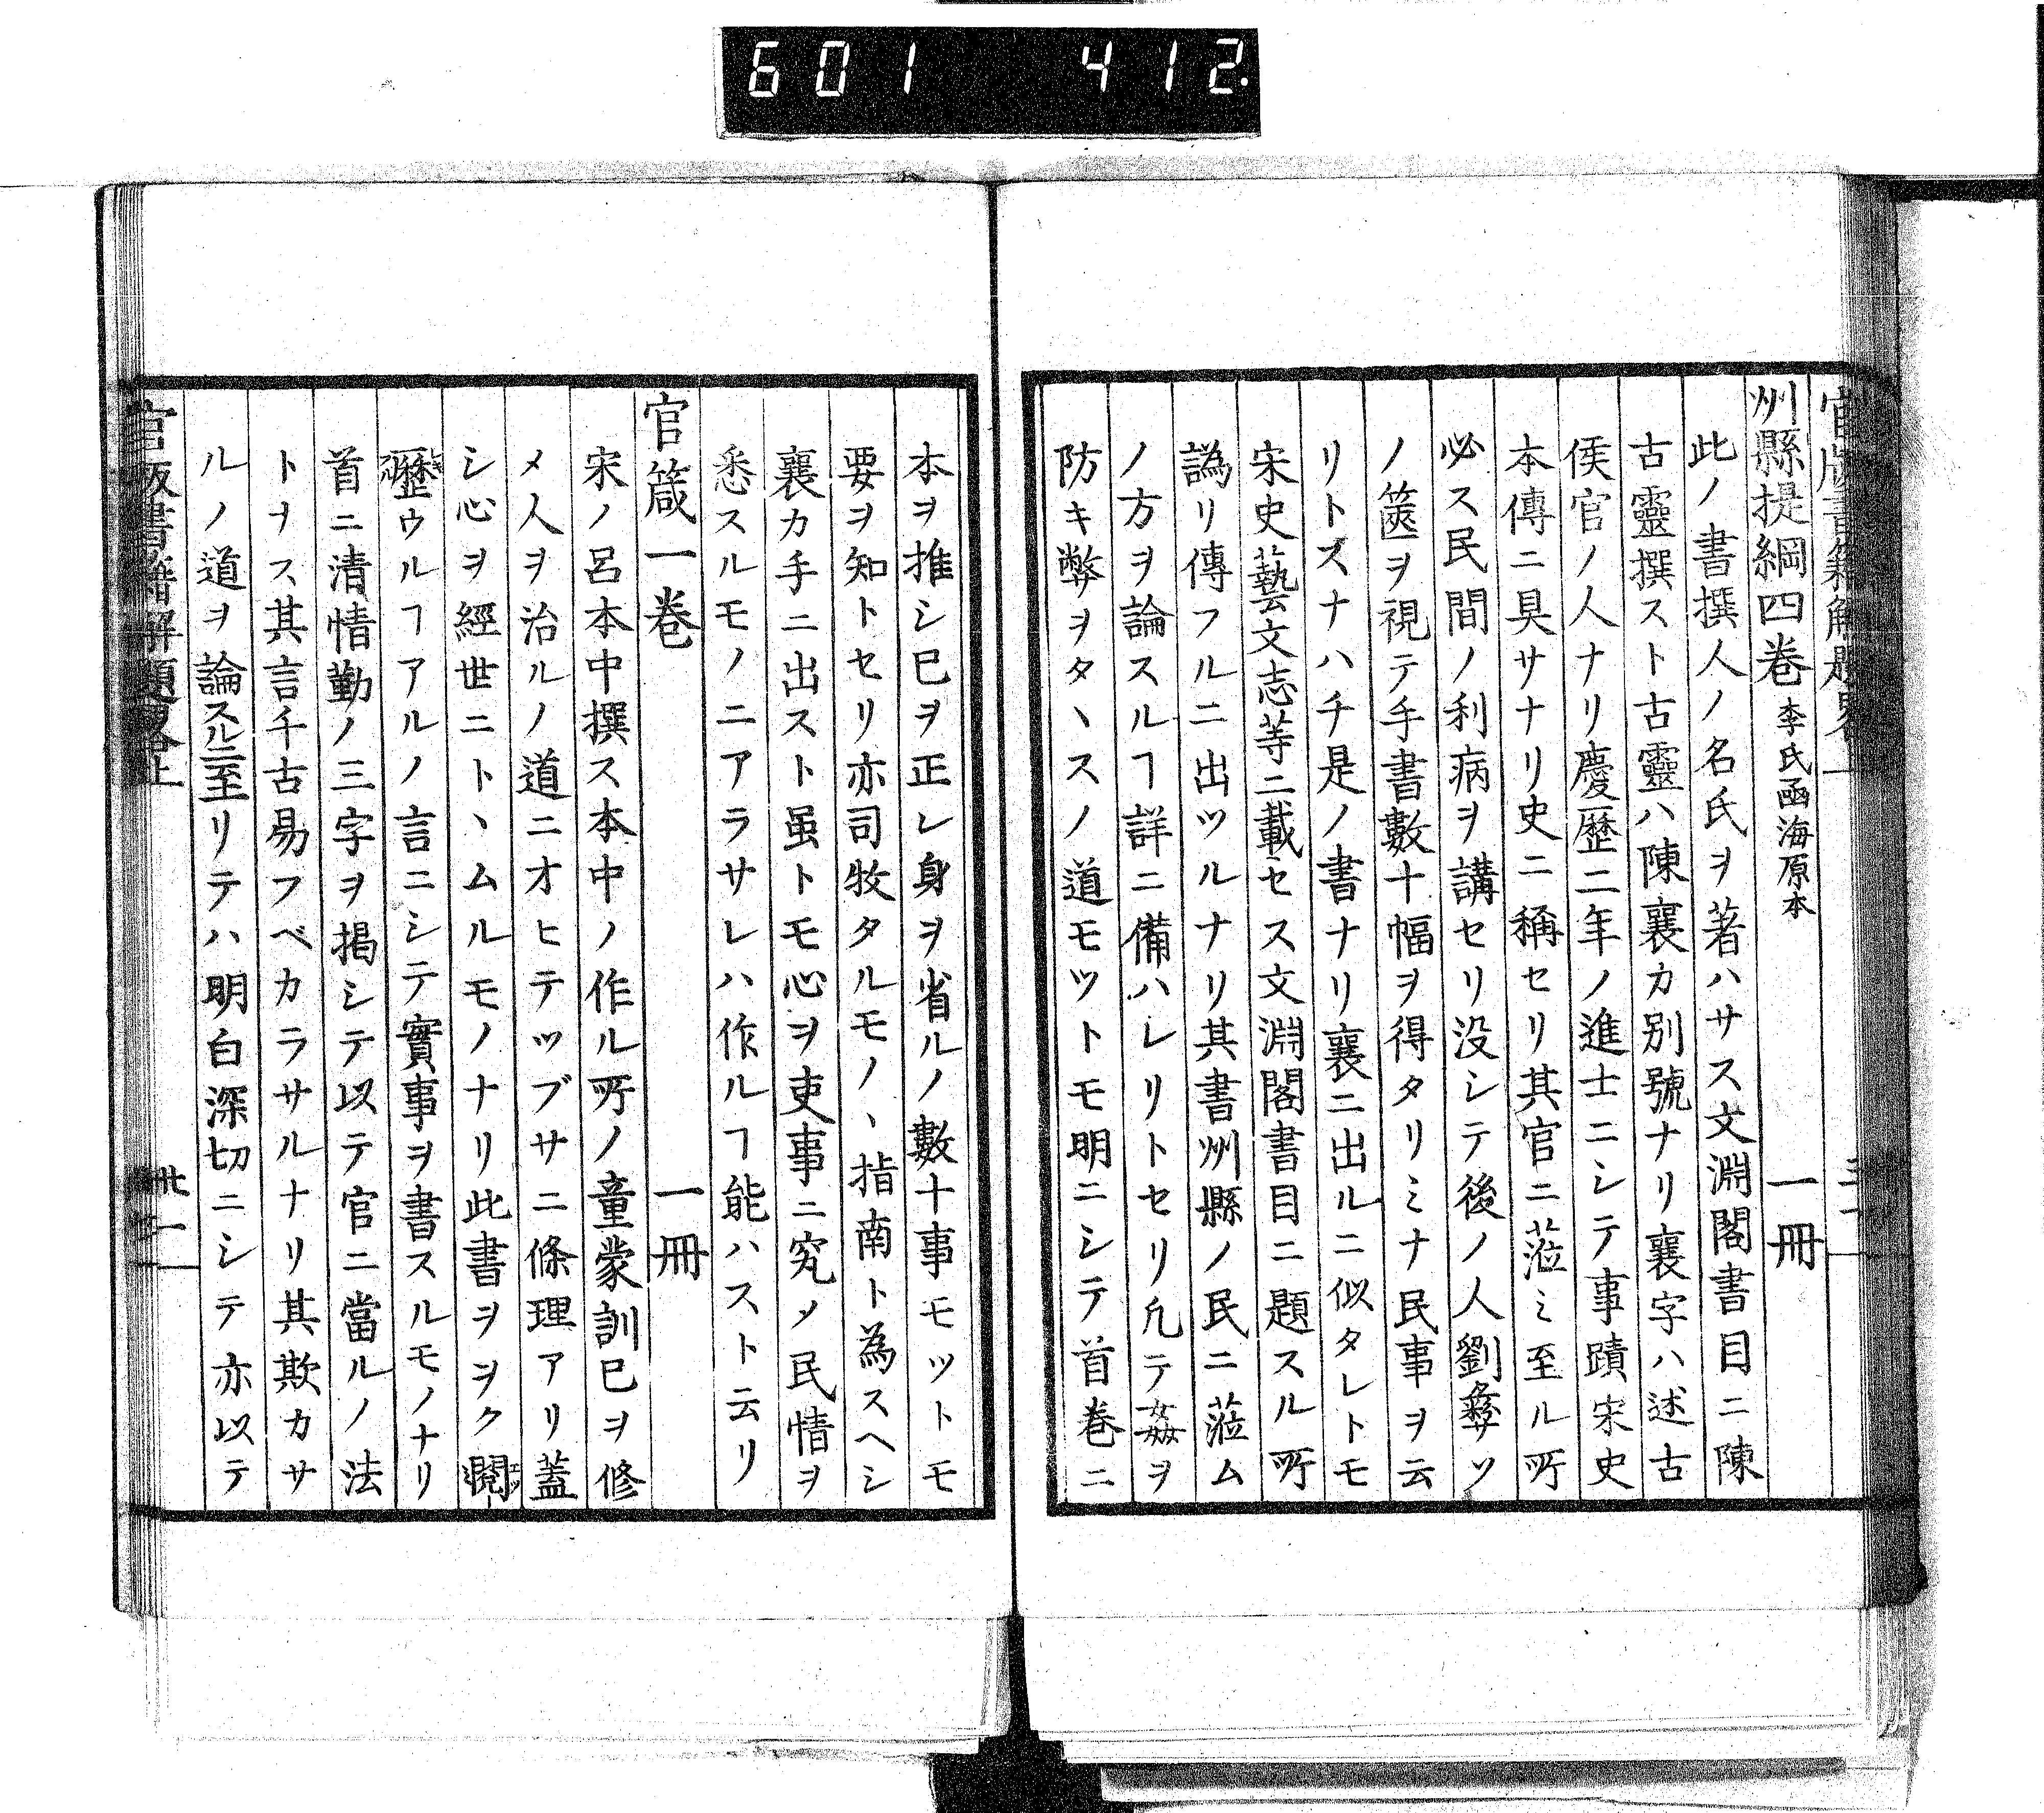 601 412
州縣提綱四巻 李氏函海原本 一冊
此ノ書撰人ノ名氏ヲ著ハサス文淵閣書目ニ陳
古靈撰スト古靈ハ陳襄カ別號ナリ襄字ハ述古
侯官ノ人ナリ慶歷二年ノ進士ニシテ事蹟宋史
本傳ニ具サナリ史ニ稱セリ其官ニ蒞ミ至ル所
必ス民間ノ利病ヲ講セリ没シテ後ノ人劉彝ソ
ノ篋ヲ視テ手書數十幅ヲ得タリミナ民事ヲ云
リトスナハチ是ノ書ナリ襄ニ出ルニ似タレトモ
宋史藝文志等ニ載セス文淵閣書目ニ題スル所
譌リ傳フルニ出ツルナリ其書州縣ノ民ニ蒞ム
ノ方ヲ論スルヿ詳ニ備ハレリトセリ凡テ姦ヲ
防キ弊ヲタヽスノ道モツトモ明ニシテ首巻ニ
本ヲ推シ已ヲ正レ身ヲ省ルノ數十事モツトモ
要ヲ知トセリ亦司牧タルモノヽ指南ト為スヘシ
襄カ手ニ出スト虽トモ心ヲ吏事ニ究メ民情ヲ
悉スルモノニアラサレハ作ルヿ能ハスト云リ
官箴一巻 一冊
宋ノ呂本中撰ス本中ノ作ル所ノ童蒙訓已ヲ修
メ人ヲ治ルノ道ニオヒテツブサニ條理アリ蓋
シ心ヲ經世ニトヽムルモノナリ此書ヲヲク閱
歷ウルヿアルノ言ニシテ實事ヲ書スルモノナリ
首ニ清愼勤ノ三字ヲ掲シテ以テ官ニ當ルノ法
トナス其言千古易フベカラサルナリ其欺カサ
ルノ道ヲ論スルニ至リテハ明白深切ニシテ亦以テ
官板書籍解題畧上 卅一